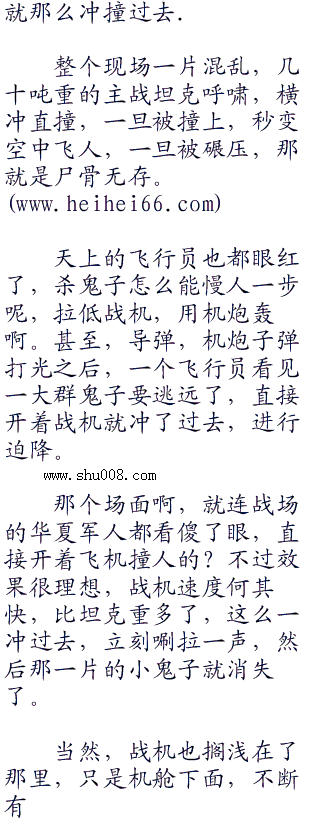 就那么冲撞过去.
整个现场一片混乱，几
十吨重的主战坦克呼啸，横
冲直撞，一旦被撞上，秒变
空中飞人，一旦被碾压，那
就是尸骨无存。
(www.heihei66.com)
天上的飞行员也都眼红
了，杀鬼子怎么能慢人一步
呢，拉低战机，用机炮轰
啊。甚至，导弹，机炮子弹
打光之后，一个飞行员看见
一大群鬼子要逃远了，直接
开着战机就冲了过去，进行
迫降。
www.shu008.com
那个场面啊，就连战场
的华夏军人都看傻了眼，直
接开着飞机撞人的？不过效
果很理想，战机速度何其
快，比坦克重多了，这么一
冲过去，立刻唰拉一声，然
后那一片的小鬼子就消失
了。
当然，战机也搁浅在了
那里，只是机舱下面，不断
有